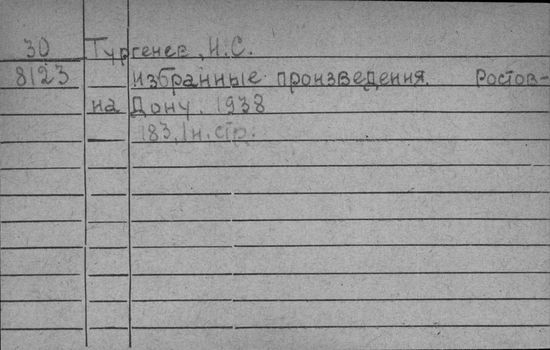 30 Тургенев, И.С.
8123 избранные произведения. Ростов-
на Дону. 1938
183, 1 н. стр.